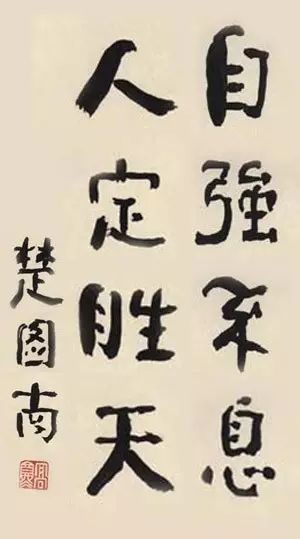 自強不息
人定胜天
楚图南